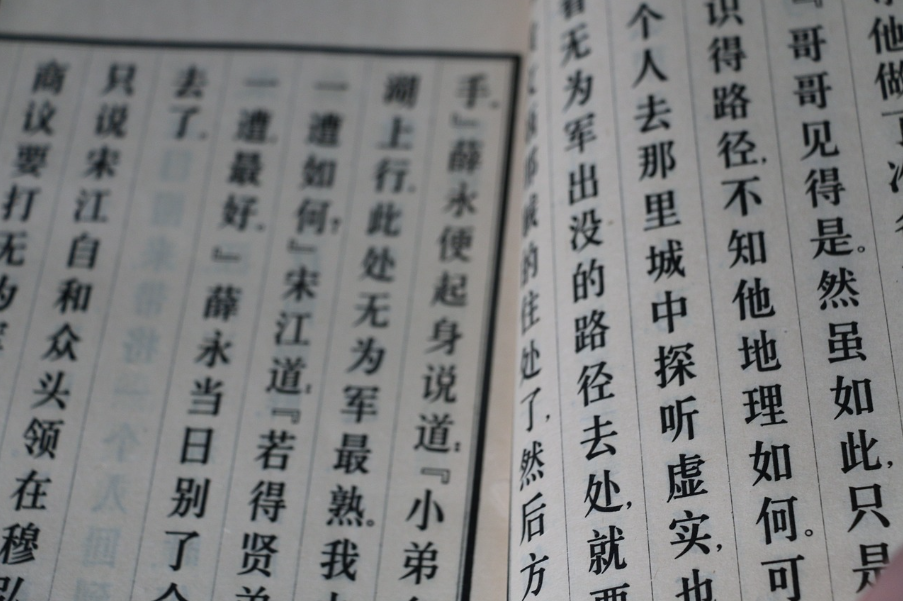 他做了
『哥哥见得是。然虽如此，只是
识得路径，不知他地理如何。可
个人去那里城中探听虚实，也
看无为军出没的路径去处，就要
的往处了，然后方
手。』薛永便起身说道：『小弟
湖上行，此处无为军最熟。我
一遭如何？』宋江道：『若得贤弟
一遭，最好。』薛永当日别了
去了。
只说宋江自和众头领在穆弘
商议要打无为军